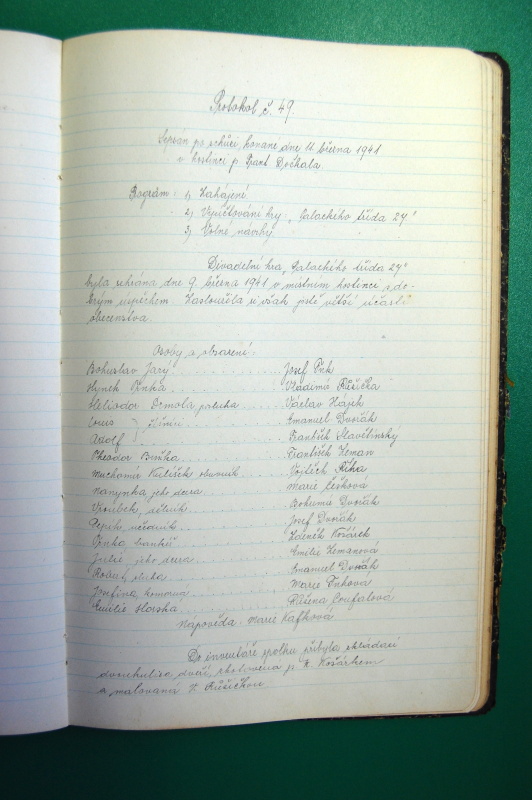 Protokol č. 49
Sepsán po schůzi, konané dne 11. března 1941
v hostinci p. Frant. Dočkala.
Program: 1) Zahájení
2) Vyúčtování hry „Palackého třída 27"
3) Volné návrhy.
Divadelní hra „Palackého třída 27"
byla sehrána dne 9. března 1941 v místním hostinci s do-
brým úspěchem. Zasloužila si však jistě větší účasti
obecenstva.
Osoby a obsazení:
Bohuslav Jarý . . . . . . . . . . Josef Fink
Hynek Vrnka . . . . . . Vladimír Růžička
Heliodor Domola . . . . Václav Hájek
. . . Emanuel Dvořák
Adolf . . . František Slavětínský
Theodor Boržka . . . . . František Zeman
Kulíšek obuvník . . . . Vojtěch Říha
Marynka jeho dcera . . . . . Marie Lešková
Vroubek, . . . . . Bohumil Dvořák
Pepík, učedník . . . . . Josef Dvořák
bankéř . . . . . Zdeněk Košárek
Julie jeho dcera . . . . . Emilie Zemanová
sluha . . . . . Emanuel Dvořák
Josefina, komorná . . . . . Marie Finková
Emilie Horská . . . . . Růžena Coufalová
Napověda: Marie Kafková
Do inventáře spolku přibyla skládací
dvoukulisa dveří, zhotovená p. K. Košárkem
a malovaná V. Růžičkou